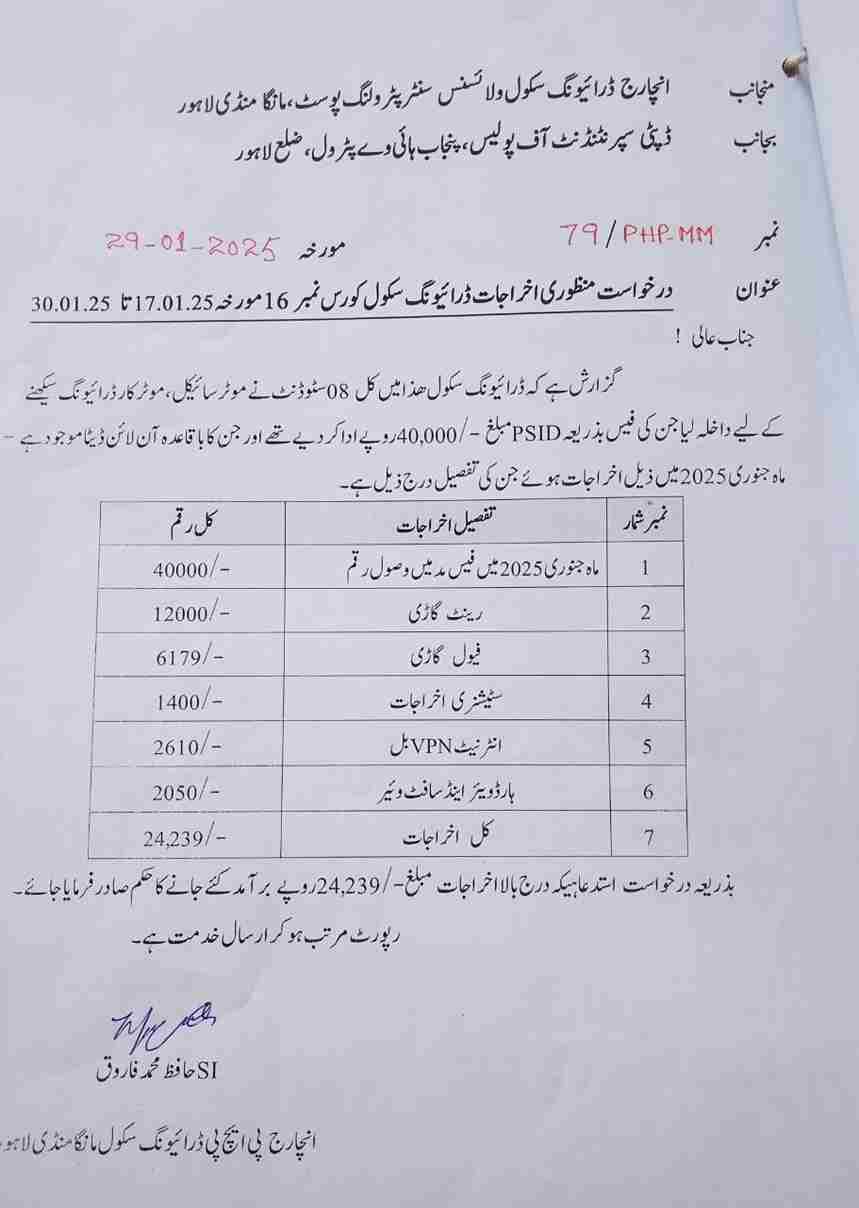 منجانب انچارج ڈرائیونگ سکول ولائسنس سنٹر پٹرولنگ پوسٹ، مانگا منڈی لاہور
بجانب ڈپٹی سپرنٹنڈنٹ آف پولیس، پنجاب ہائی وے پٹرول، ضلع لاہور
نمبر 79/PHP-MM مورخہ 29-01-2025
عنوان درخواست منظوری اخراجات ڈرائیونگ سکول کورس نمبر 16 مورخہ 17.01.25 تا 30.01.25
جناب عالی !
گزارش ہے کہ ڈرائیونگ سکول ھذا میں کل 08 سٹوڈنٹ نے موٹر سائیکل، موٹر کار ڈرائیونگ سیکھنے
کے لیے داخلہ لیا جن کی فیس بذریعہ PSID مبلغ -/40,000 روپے ادا کر دیے تھے اور جن کا باقاعدہ آن لائن ڈیٹا موجود ہے -
ماہ جنوری 2025 میں ذیل اخراجات ہوئے جن کی تفصیل درج ذیل ہے۔
نمبر شمار تفصیل اخراجات کل رقم
1 ماہ جنوری 2025 میں فیس مد میں وصول رقم 40000/-
2 رینٹ گاڑی 12000/-
3 فیول گاڑی 6179/-
4 سٹیشنری اخراجات 1400/-
5 انٹرنیٹ VPN بل 2610/-
6 ہارڈویئر اینڈ سافٹ وئیر 2050/-
7 کل اخراجات 24,239/-
بذریعہ درخواست استدعا ہیکہ درج بالا اخراجات مبلغ -/24,239 روپے برآمد کئے جانے کا حکم صادر فرمایا جائے۔
رپورٹ مرتب ہو کر ارسال خدمت ہے۔
SI حافظ محمد فاروق
انچارج پی ایچ پی ڈرائیونگ سکول مانگا منڈی لاہور